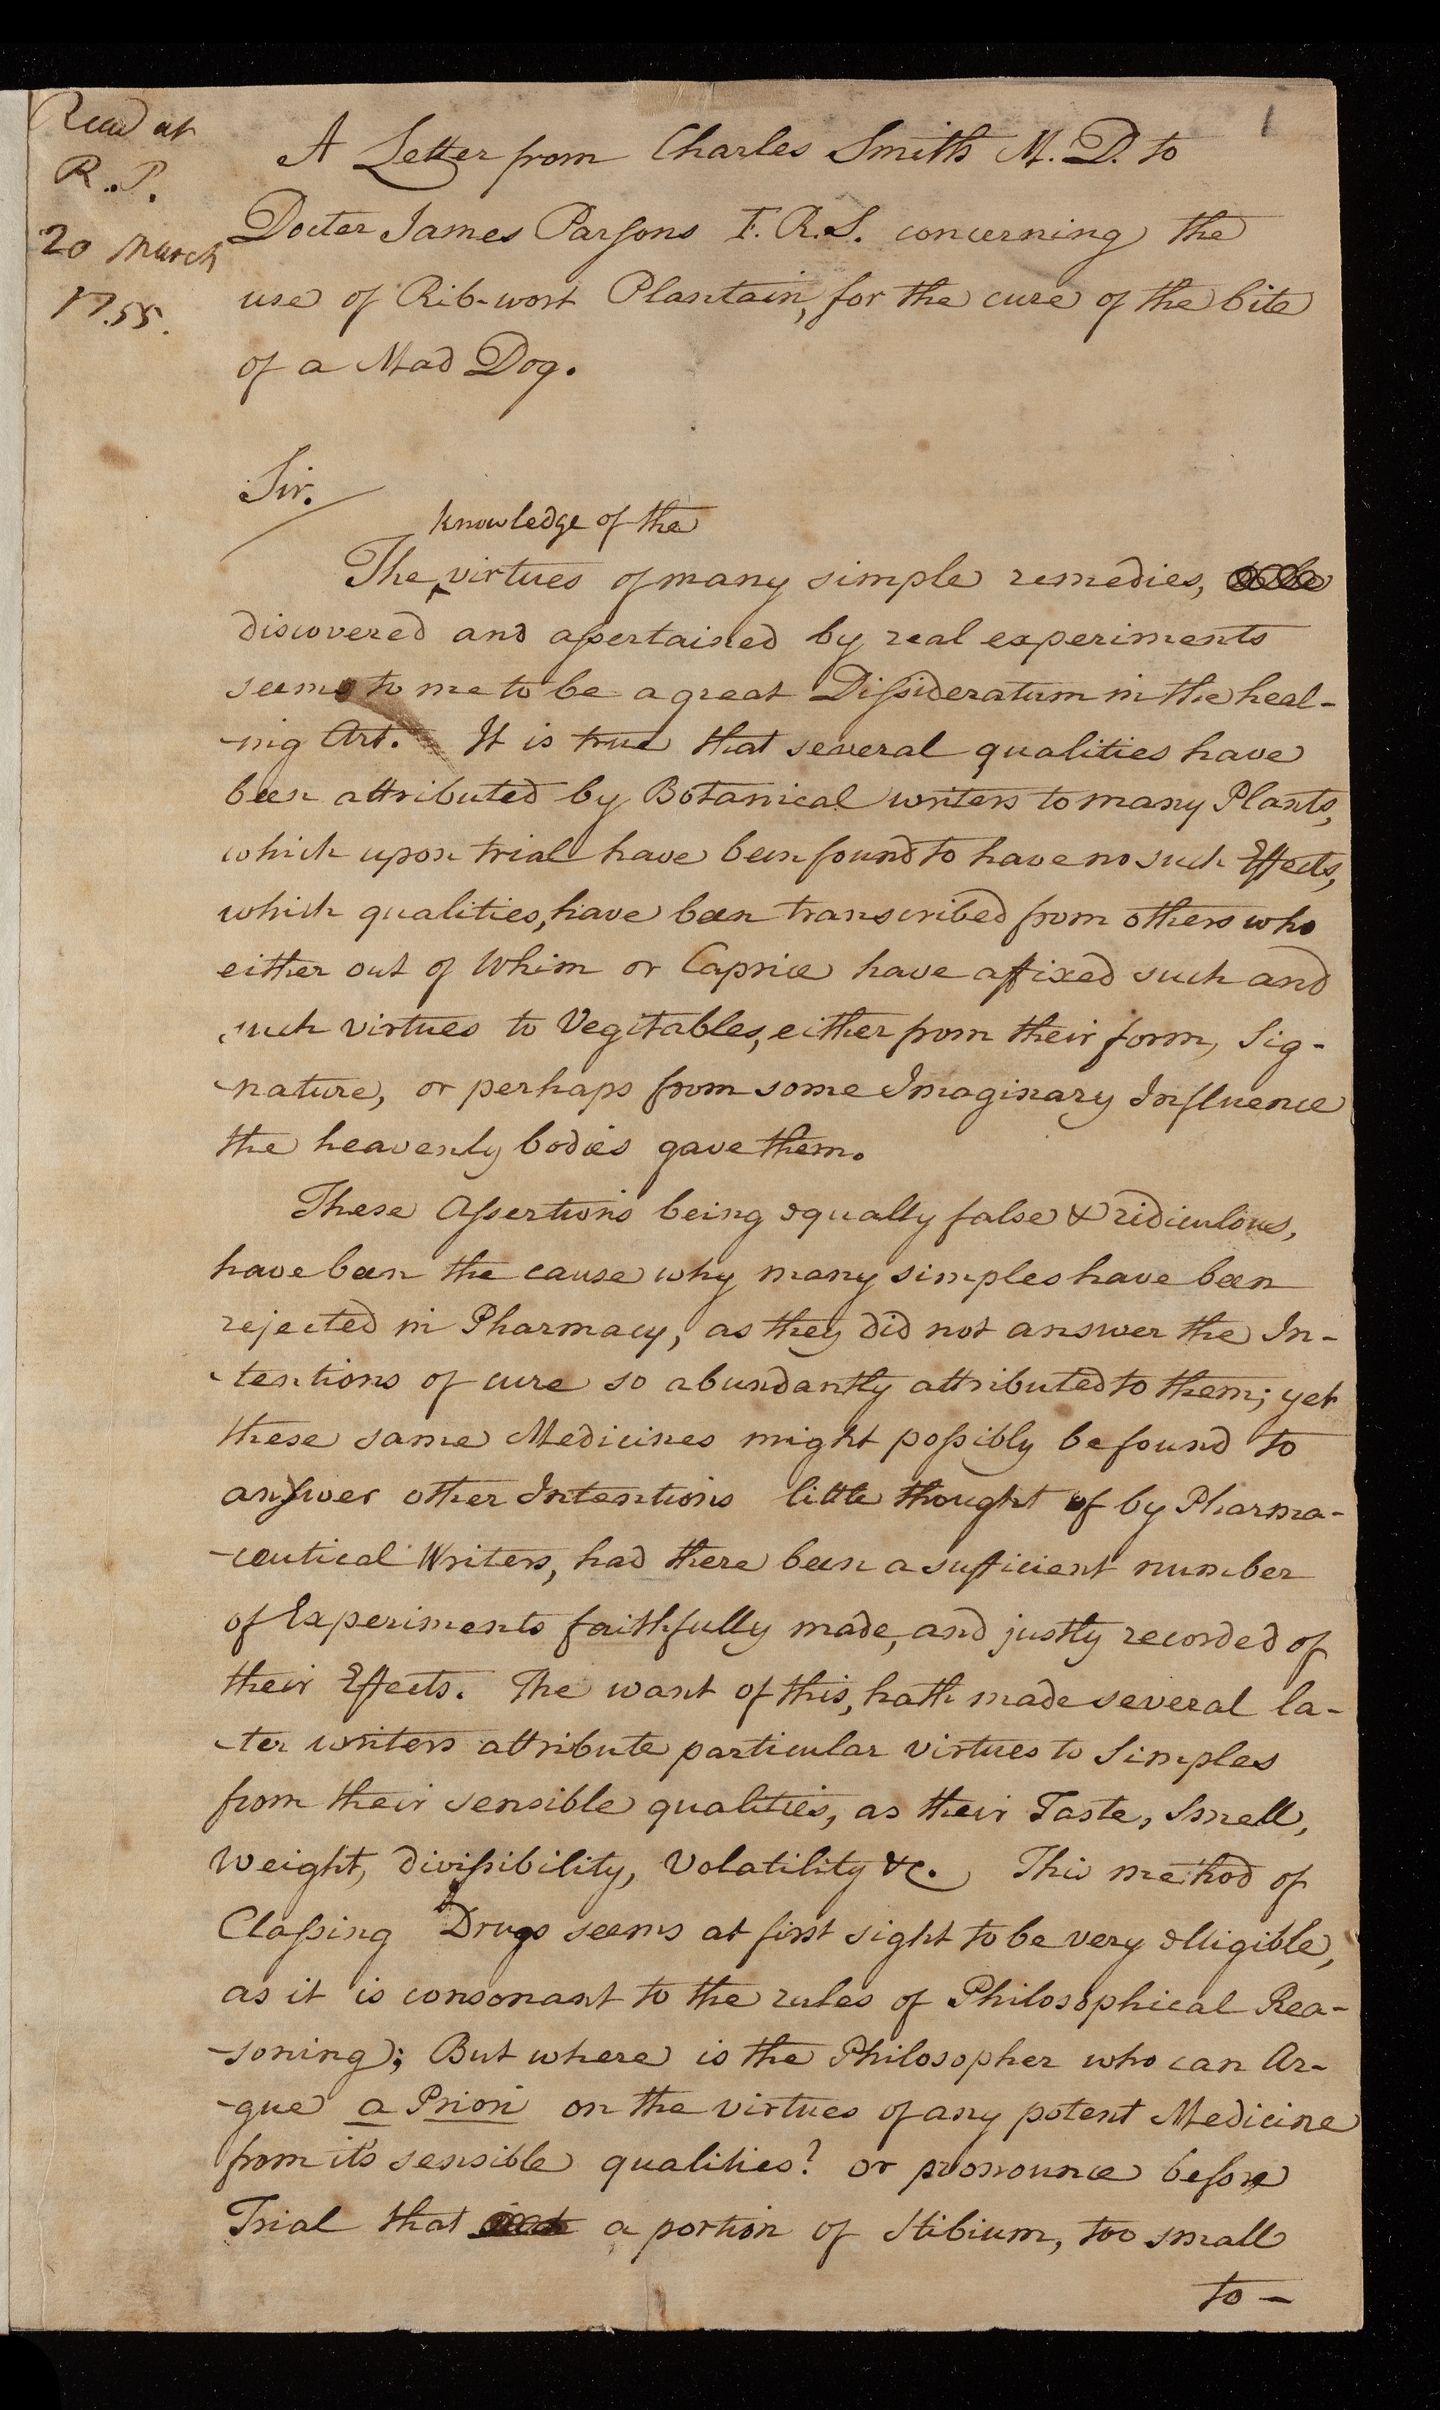 Read at
R. S.
20 March
1755.
1
A Letter from Charles Smith M. D. to
Docter James Parſons F. R. S. concerning the
use of Rib-wort Plantain, for the cure of the bite
of a Mad Dog.
Sir.
knowledge of the
The ‸ virtues of many simple remedies,
discovered and aſsertained by real experiments
seems to me to be a great Diſsideratum in the heal-
-ing Art. It is true that several qualities have
been attributed by Botanical writers to many Plants,
which upon trial have been found to have no such Effects,
which qualities, have been transcribed from others who
either out of Whim or Caprice have affixed such and
such virtues to Vegitables, either from their form, Sig-
-nature, or perhaps from some Imaginary Influence
the heavenly bodies gave them.
These Aſsertions being equally false & ridiculous,
have been the cause why many simples have been
rejected in Pharmacy, as they did not answer the In-
-tentions of cure so abundantly attributed to them; yet
these same Medicines might poſsibly be found to
anſwer other Intentions little thought of by Pharma-
-ceutical Writers, had there been a sufficient number
of Experiments faithfully made, and justly recorded of
their Effects. The want of this, hath made several la-
-ter writers attribute particular virtues to Simples
from their sensible qualities, as their Taste, Smell,
Weight, diviſsibility, Volatility &c. This method of
Claſsing Drugs seems at first sight to be very elligible,
as it is consonant to the rules of Philosophical Rea-
-soning; But where is the Philosopher who can Ar-
-gue a Priori on the virtues of any potent Medicine
from it's sensible qualities? or pronounce before
Trial that a portion of Stibium, too small
to -